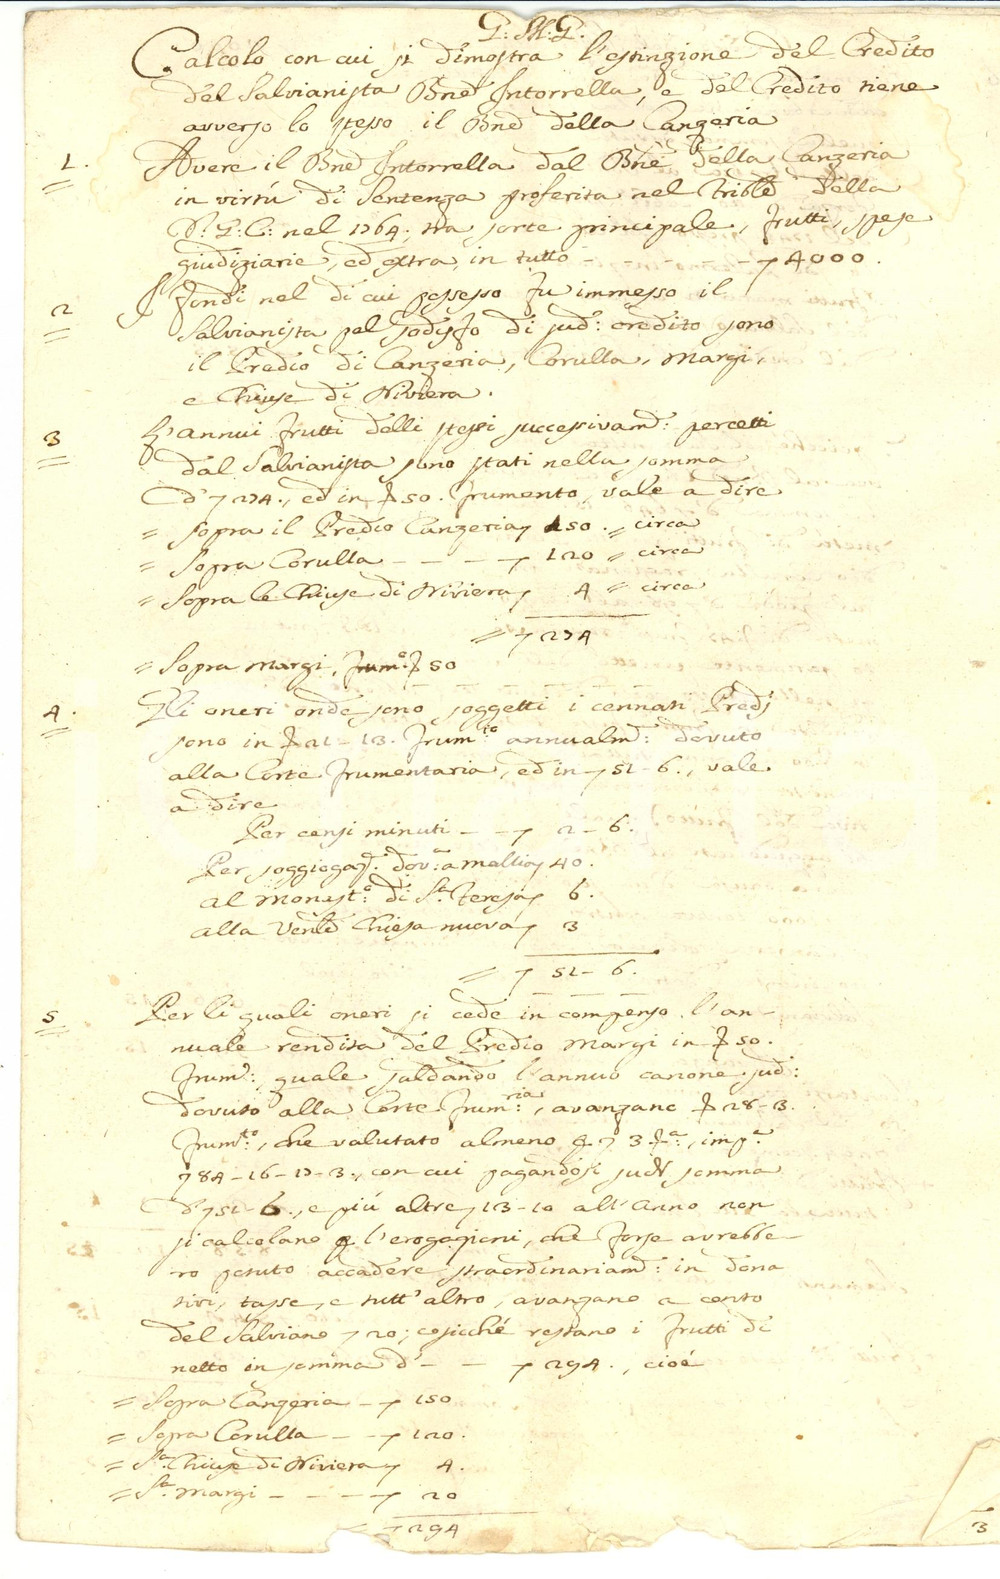 G: M: G:
Calcolo con cui si dimostra l'estinzione del Credito
del Salvianista Bne Intorrella, e del Credito tiene
avverso lo stesso il Bne della Canzeria
1. Avere il Bne Intorrella dal Bne della Canzeria
in virtù di Sentenza proferita nel Trible della
R: G: C: nel 1764: tra sorte principale, frutti, spese
giudiziarie, ed extra, in tutto - - - - - 7 4000.
2 I fondi nel di cui possesso fu immesso il
Salvianista pel sodisfo di sud: credito sono
il Predio di Canzeria, Corulla, Margi,
e Chiuse di Riviera.
3 L'annui frutti delli stessi successivam: percetti
dal Salvianista sono stati nella somma
d' 7 274., ed in 50. frumento, vale a dire
= Sopra il Predio Canzeria 7 150. = circa
= Sopra Corulla - - - 7 120 = circa
= Sopra le Chiuse di Riviera 7 4 = circa
= 7 274
= Sopra Margi, frum:o 50
4. Gli oneri onde sono soggetti i cennati Predj
sono in 21-13. frum:to annualm: dovuto
alla Corte frumentaria, ed in 7 51-6., vale
a dire
Per censi minuti - - 7 2-6.
Per soggiogaz: dov:a a mellio 7 40.
al Monist:o di S.ta Teresa 7 6.
alla Venle Chiesa nuova 7 3
= 7 51-6.
5 Per li quali oneri si cede in compenso l'an-
nuale rendita del Predio Margi in 50.
frum:, quale saldando l'annuo canone sud:
dovuto alla Corte frum:ria, avanzano 28-3.
frum:to, che valutato almeno p 7 3 , imp.a
7 84-16-17-3., con cui pagandosi sudd somma
d' 7 51-6., e più altre 7 13-10 all'anno non
si calcolano p l'erogazioni, che forse avrebbe-
ro potuto accadere straordinariam: in dona
tivi, tasse, e tutt'altro, avanzano a conto
del Salviano 7 20; cosicché restano i frutti di
netto in somma d' - - 7 294., cioè
= Sopra Canzeria - 7 150
= Sopra Corulla - - 7 120.
= S.a Chiuse di Riviera 7 4.
= S.a Margi - - - - 7 20
7 294
3